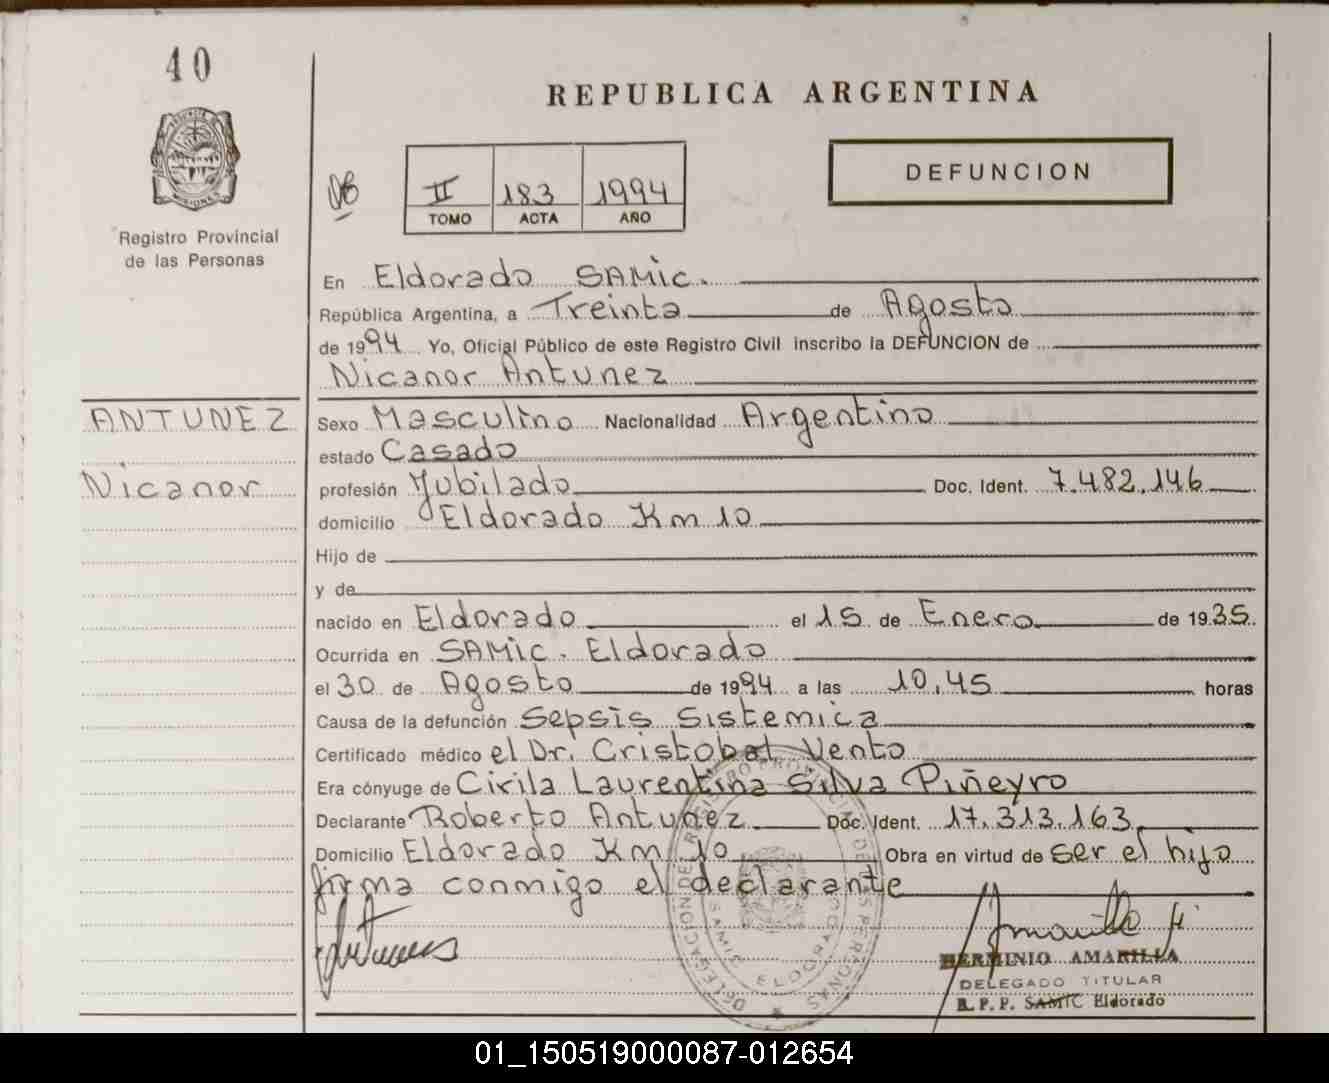 40
REPUBLICA ARGENTINA
DEFUNCION
II 183 1994
TOMO ACTA AÑO
PROVINCIA DE MISIONES
Registro Provincial
de las Personas
En Eldorado SAMIC.
República Argentina, a Treinta de Agosto
de 1994 Yo, Oficial Público de este Registro Civil inscribo la DEFUNCION de
Nicanor Antunez
ANTUNEZ
Nicanor
Sexo Masculino Nacionalidad Argentino
estado Casado
profesión Jubilado Doc. Ident. 7.482.146
domicilio Eldorado Km 10
Hijo de
y de
nacido en Eldorado el 15 de Enero de 1935
Ocurrida en SAMIC. Eldorado
el 30 de Agosto de 1994 a las 10,45 horas
Causa de la defunción Sepsis Sistemica
Certificado médico el Dr. Cristobal Vento
Era cónyuge de Cirila Laurentina Silva Piñeyro
Declarante Roberto Antunez Doc. Ident. 17.313.163
Domicilio Eldorado Km 10 Obra en virtud de ser el hijo
firma conmigo el declarante
DELEGACION DE REGISTRO PROVINCIAL DE LAS PERSONAS
SAMIC ELDORADO
HERMINIO AMARILLA
DELEGADO TITULAR
R.P.P. SAMIC Eldorado
01_150519000087-012654